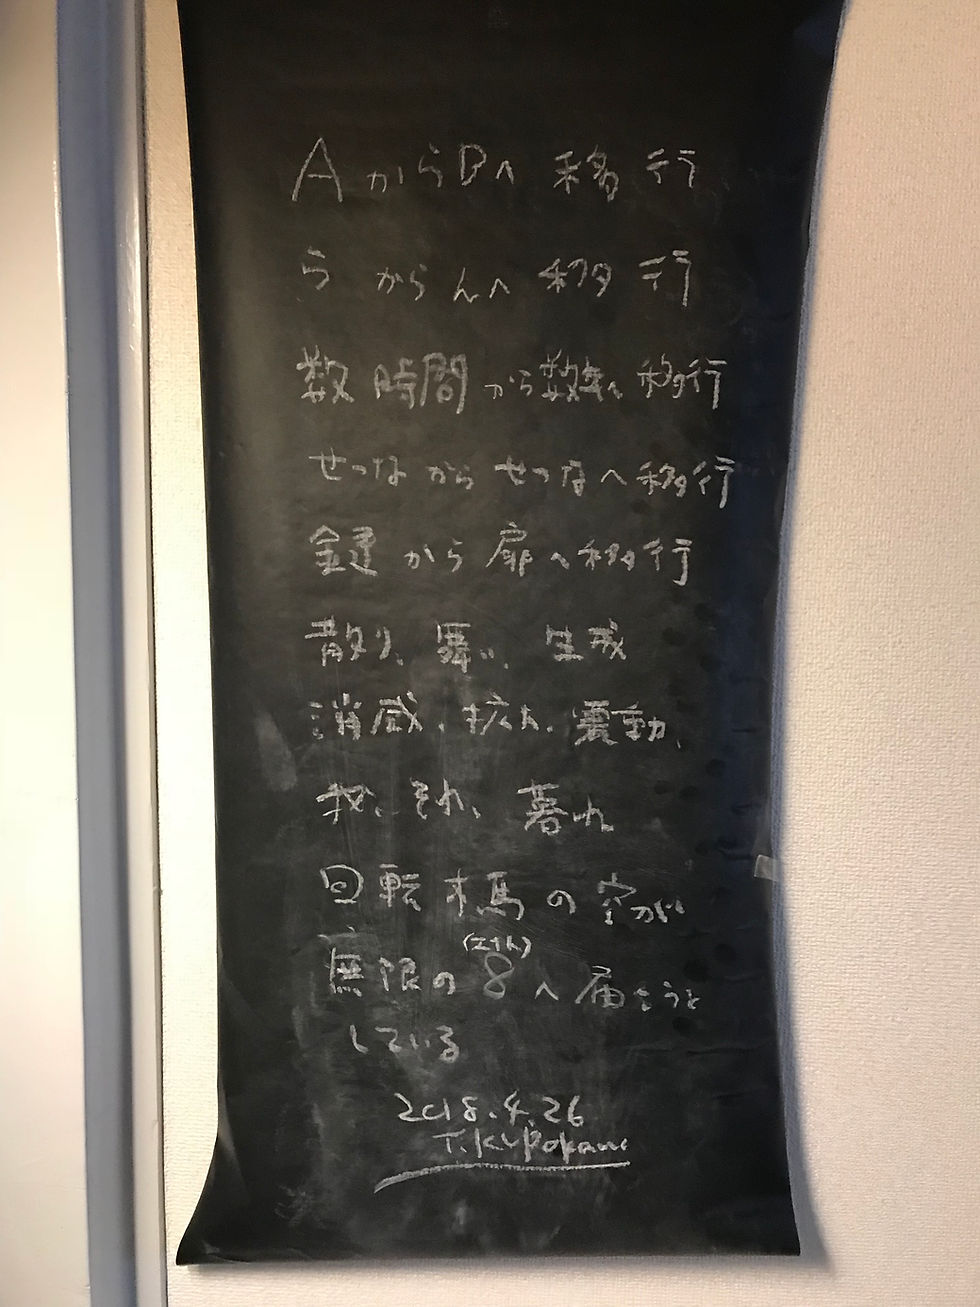 AからBへ移行
らからんへ移行
数時間から数年へ移行
せつなからせつなへ移行
鍵から扉へ移行
散り、舞い、生成
消滅、拡大、震動、
我、それ、暮れ
回転木馬の空が
無限の8(エイト)へ届こうと
している
2018.4.26